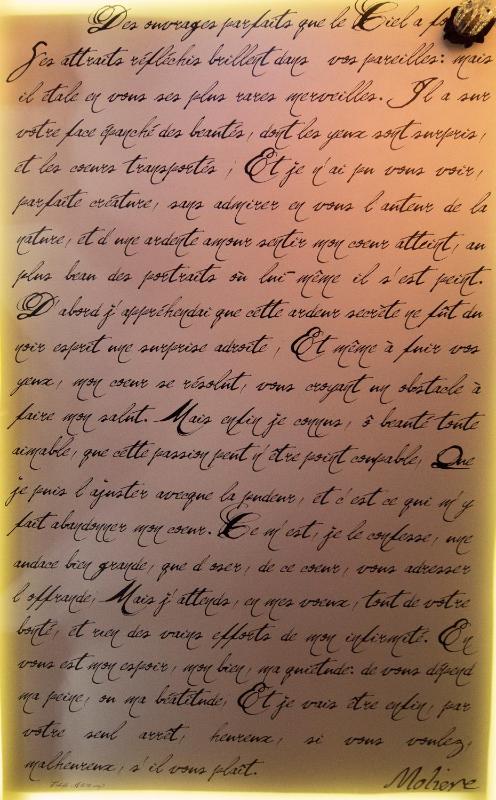 Des ouvrages parfaits que le Ciel a
Ses attraits réfléchis brillent dans vos pareilles: mais
il étale en vous ses plus rares merveilles. Il a sur
votre face épanché des beautés, dont les yeux sont surpris,
et les coeurs transportés ; Et je n'ai pu vous voir,
parfaite créature, sans admirer en vous l'auteur de la
nature, et d'une ardente amour sentir mon coeur atteint, au
plus beau des portraits où lui-même il s'est peint.
D'abord j'appréhendai que cette ardeur secrète ne fût du
noir esprit une surprise adroite, Et même à fuir vos
yeux, mon coeur se résolut, vous croyant un obstacle à
faire mon salut. Mais enfin je connus, ô beauté toute
aimable, que cette passion peut n'être point coupable, Que
je puis l'ajuster avecque la pudeur, et c'est ce qui m'y
fait abandonner mon coeur. Ce m'est, je le confesse, une
audace bien grande, que d'oser, de ce coeur, vous adresser
l'offrande, Mais j'attends, en mes voeux, tout de votre
bonté, et rien des vains efforts de mon infirmité. En
vous est mon espoir, mon bien, ma quiétude: de vous dépend
ma peine, ou ma béatitude, Et je vais être enfin, par
votre seul arrêt, heureux, si vous voulez,
malheureux, s'il vous plaît.
Molière